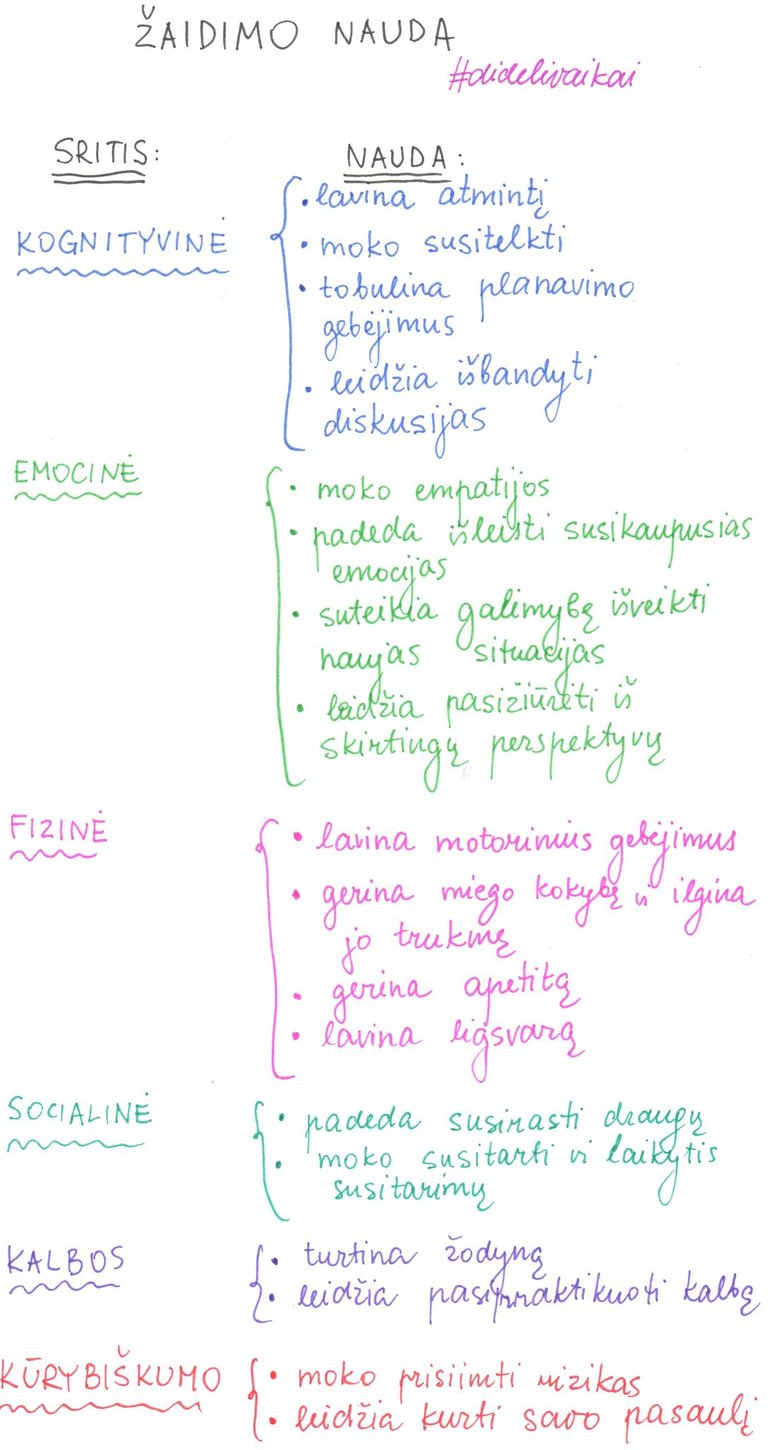 ŽAIDIMO NAUDA
#didelivaikai
SRITIS: NAUDA:
KOGNITYVINĖ
• lavina atmintį
• moko susitelkti
• tobulina planavimo
gebėjimus
• leidžia išbandyti
diskusijas
EMOCINĖ
• moko empatijos
• padeda išleisti susikaupusias
emocijas
• suteikia galimybę išveikti
naujas situacijas
• leidžia pasižiūrėti iš
skirtingų perspektyvų
FIZINĖ
• lavina motorinius gebėjimus
• gerina miego kokybę ir ilgina
jo trukmę
• gerina apetitą
• lavina ligsvarą
SOCIALINĖ
• padeda susirasti draugų
• moko susitarti ir laikytis
susitarimų
KALBOS
• turtina žodyną
• leidžia pasipraktikuoti kalbą
KŪRYBIŠKUMO
• moko prisiimti rizikas
• leidžia kurti savo pasaulį